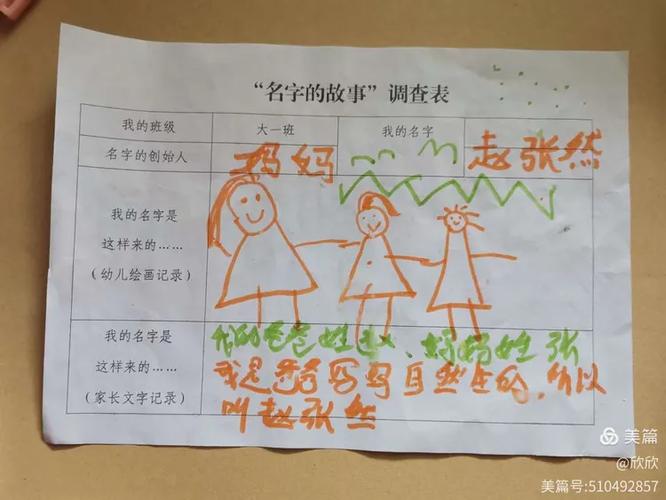 “名字的故事”调查表
我的班级 大一班 我的名字 赵张然
名字的创始人 妈妈
我的名字是
这样来的……
（幼儿绘画记录）
我的名字是
这样来的……
（家长文字记录）
我的爸爸姓赵、妈妈姓张
我是爸爸妈妈自然生的，所以
叫赵张然
美篇
@欣欣
美篇号:510492857